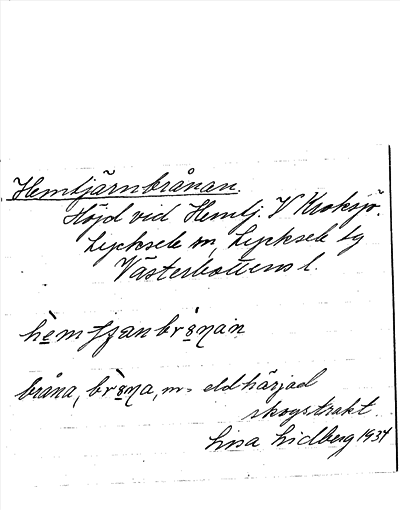 Hemtjärnbrånan.
Höjd vid Hemtj. V Kroksjö.
Lycksele sn, Lycksele lg
Västerbottens l.
bråna, m = eldhärjad
skogstrakt
Lisa Lidberg 1937